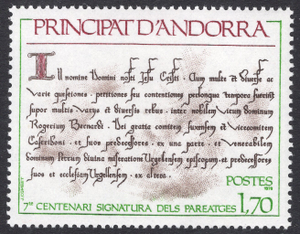 PRINCIPAT D'ANDORRA
In nomine Domini nostri Jesu Cristi. Cum multe et diverse ac
varie questiones, petitiones seu contentiones perlonguа tempora fuerint
super multis variis et diversis rebus, inter nobilem virum dominum
Rogerium Bernardi, Dei gratia comitem fuxensem, et vicecomitem
Castriboni, et suos predecessores, ex una parte, et venerabilem
dominum Petrum divina miseratione Urgellensem episcopum, et predecessores
suos et ecclesiam Urgellensem, ex altera.
POSTES
1978
7è CENTENARI SIGNATURA DELS PAREATGES 1,70